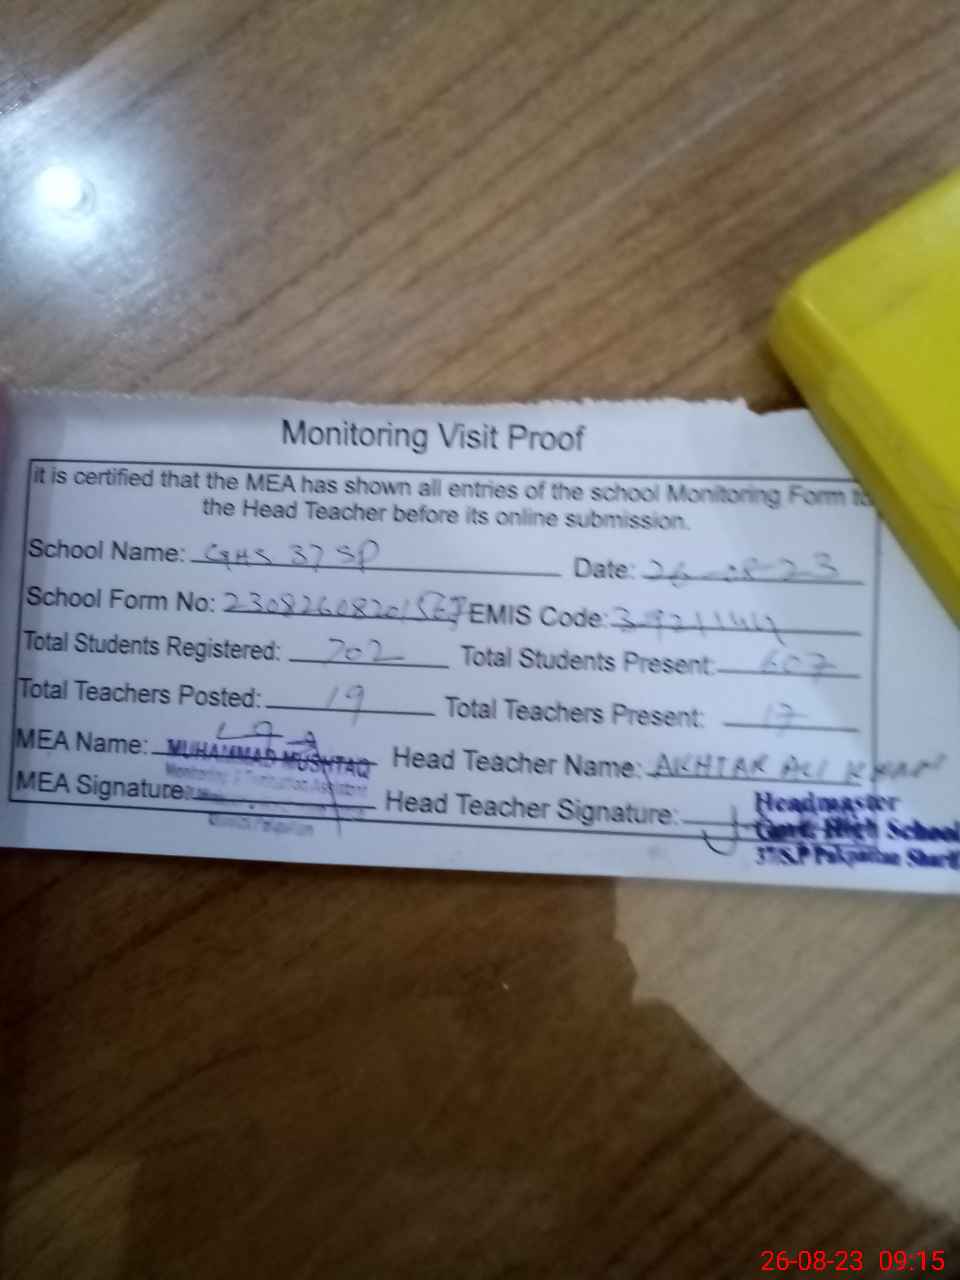 Monitoring Visit Proof
it is certified that the MEA has shown all entries of the school Monitoring Form to
the Head Teacher before its online submission.
School Name: GHS 37 SP Date: 26-08-23
School Form No: EMIS Code:
Total Students Registered: 702 Total Students Present: 607
Total Teachers Posted: 19 Total Teachers Present: 17
MEA Name: MUHAMMAD MUSHTAQ Head Teacher Name: AKHTAR ALI KHAN
MEA Signature: Head Teacher Signature:
Headmaster
Govt. High School
37/S.P Pakpattan Sharif
26-08-23 09:15